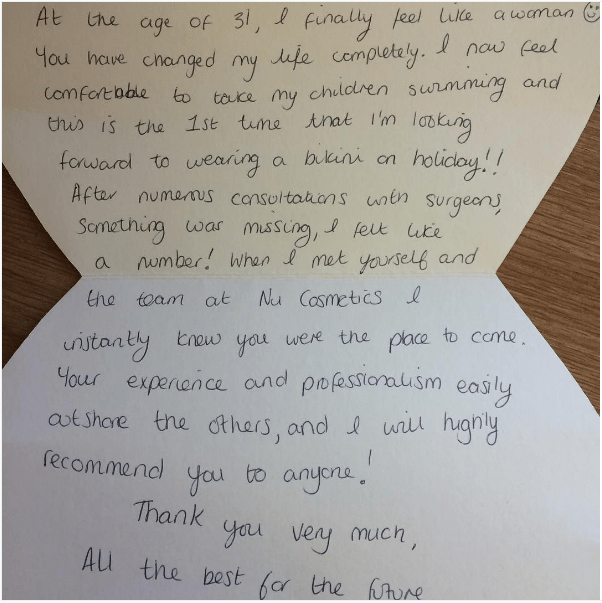 At the age of 31, I finally feel like a woman ☺
You have changed my life completely. I now feel
comfortable to take my children swimming and
this is the 1st time that I'm looking
forward to wearing a bikini on holiday!!
After numerous consultations with surgeons,
Something was missing, I felt like
a number! When I met yourself and
the team at Nu Cosmetics I
instantly knew you were the place to come.
Your experience and professionalism easily
outshone the others, and I will highly
recommend you to anyone!
Thank you very much,
All the best for the future